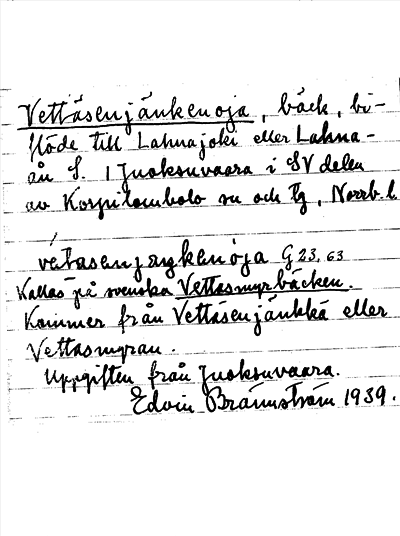 Vettäsenjänkenoja, bäck, bi-
flöde till Lahnajoki eller Lahna-
ån S. I Juoksuvaara i SV delen
av Korpilombolo sn och tg, Norrb. l.
vetæsenjæŋkenoja G 23, 63
Kallas på svenska Vettasmyrbäcken.
Kommer från Vettäsenjänkkä eller
Vettasmyran.
Uppgiften från Juoksuvaara.
Edvin Brännström 1939.